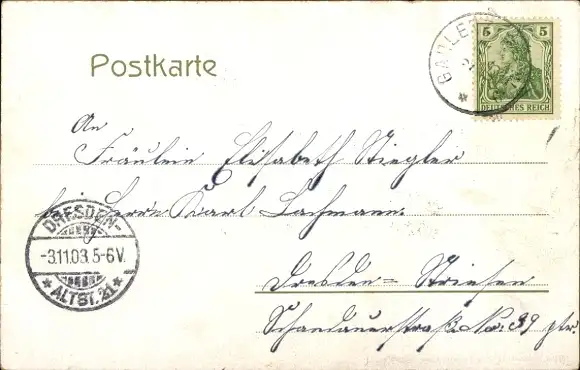 Postkarte
5 5
DEUTSCHES REICH
An
Fräulein Elisabeth Stiegler
bei Herrn Karl Lachmann.
Dresden-Striesen
Schandauerstraße No: 39 ptr.
DRESDEN-
-3.11.03.5-6V.
* ALTST. 21 *